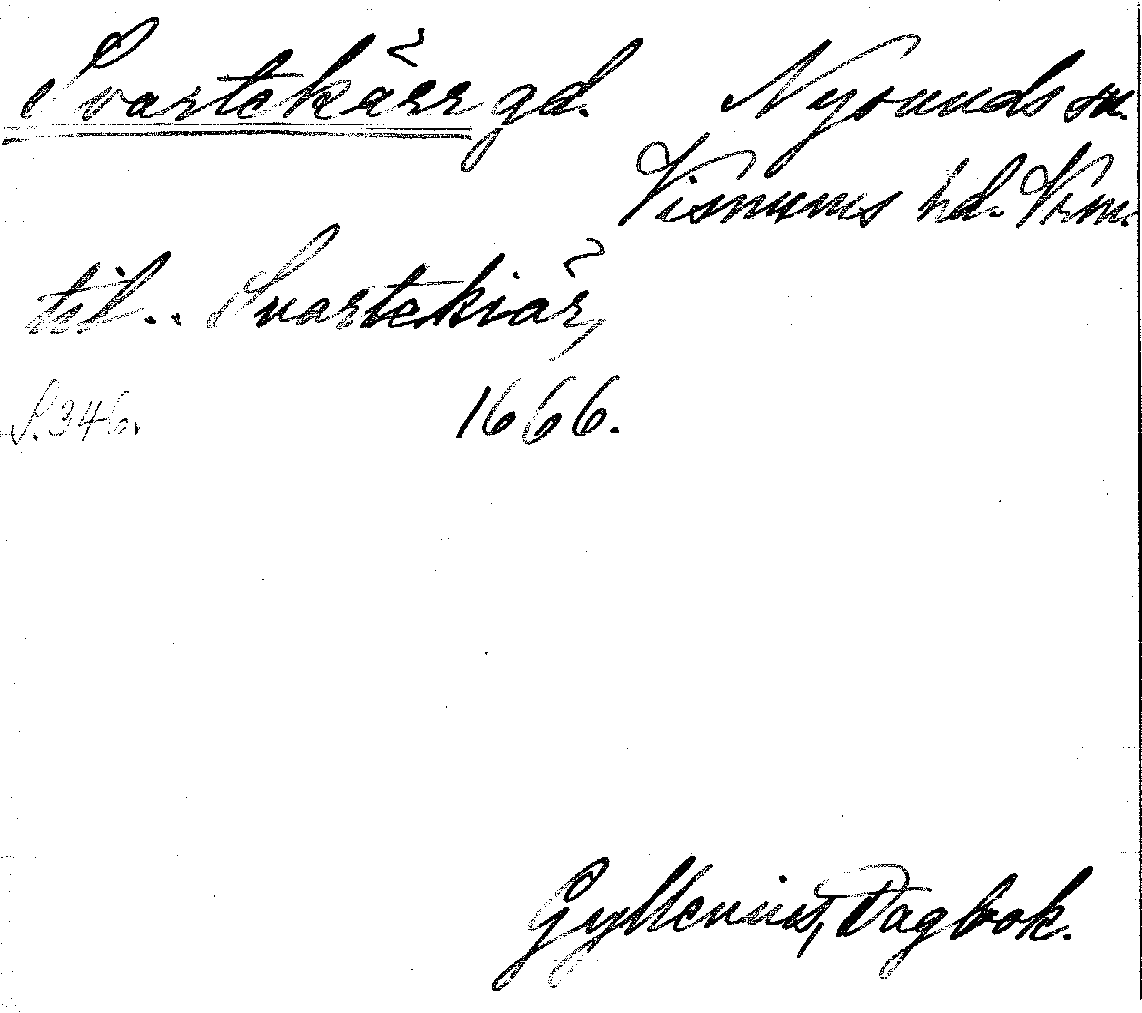 Svartekärr gd. Nysunds sn.
Visnums hd. Vrm.
till .. Svartekiär,
S. 346. 1666.
Gyllenius, Dagbok.